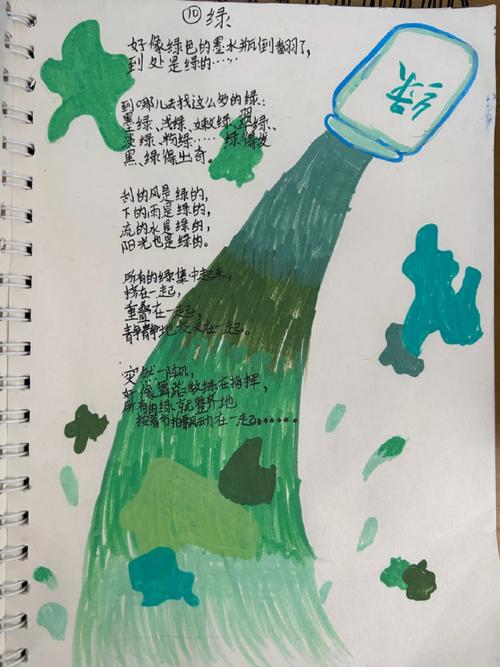 ⑩绿
好像绿色的墨水瓶倒翻了,
到处是绿的……
绿
到哪儿去找这么多的绿:
墨绿、浅绿、嫩绿、翠绿、
淡绿、粉绿……绿得发
黑、绿得出奇。
刮的风是绿的,
下的雨是绿的,
流的水是绿的,
阳光也是绿的。
所有的绿集中起来,
挤在一起,
重叠在一起,
静静地交叉在一起。
突然一阵风,
好像舞蹈教练在指挥,
所有的绿就整齐地
按着节拍飘动在一起……